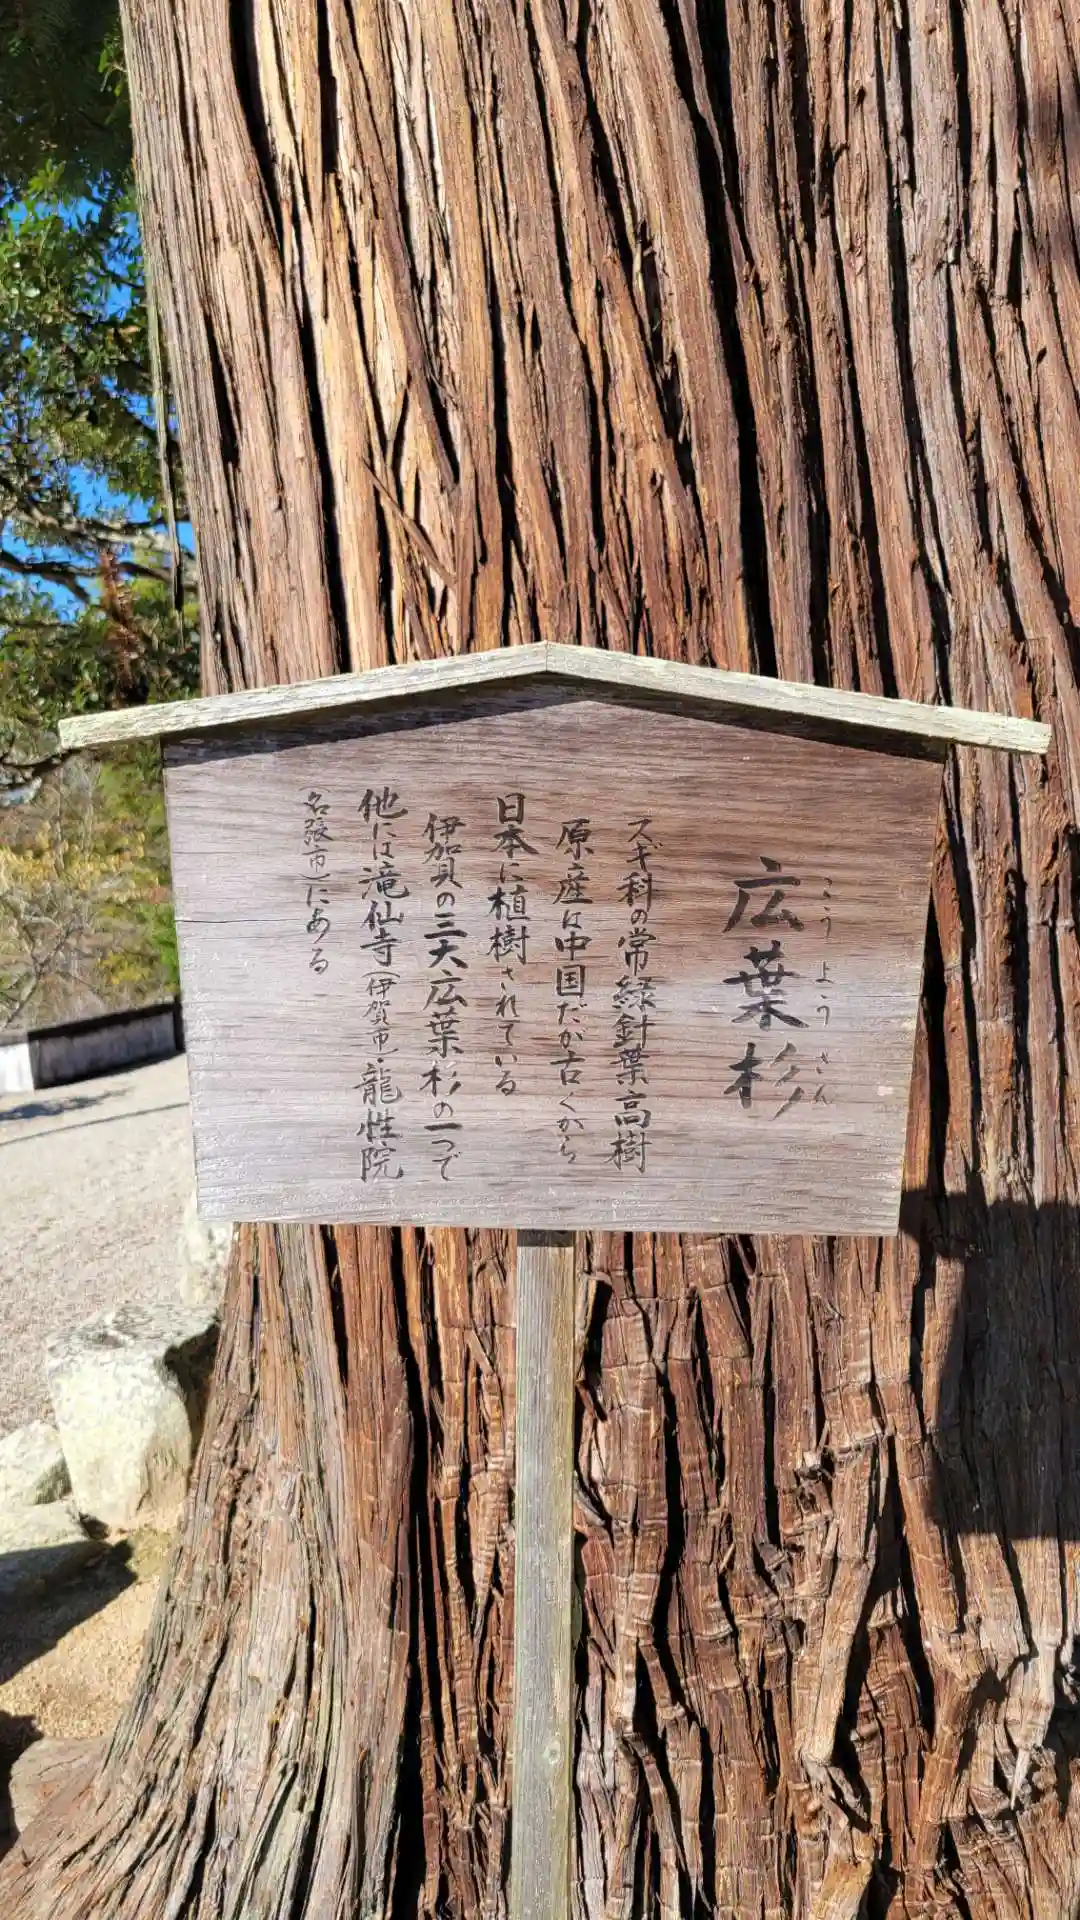 広葉杉
こうようさん
スギ科の常緑針葉高樹
原産は中国だが古くから
日本に植樹されている
伊加貝の三大広葉杉の一つで
他には滝仙寺(伊賀市)・龍性院
(名張市)にある